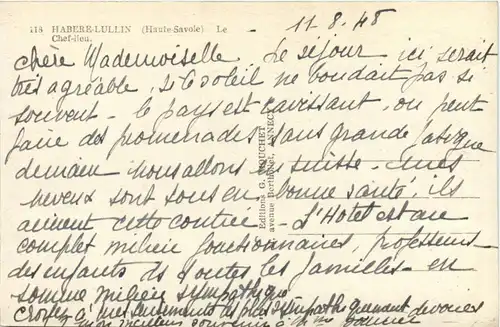 118 HABERE-LULLIN (Haute-Savoie) Le
Chef-lieu.
11.8.48
Chère Mademoiselle. Le séjour ici serait
très agréable, si le soleil ne boudait pas si
souvent - le pays est ravissant, on peut
faire des promenades sans grande fatigue
demain nous allons en suisse. mes
neveux sont tous en bonne santé, ils
aiment cette contrée - L'Hotel est au
complet milieu fonctionnaires, professeurs
des enfants ds toutes les familles - en
somme milieu sympathique
Croyez à mes sentiments les plus sympathiquement dévoués
mon meilleur souvenir à
Editions G. MOUCHET
avenue Berthollet, ANNECY